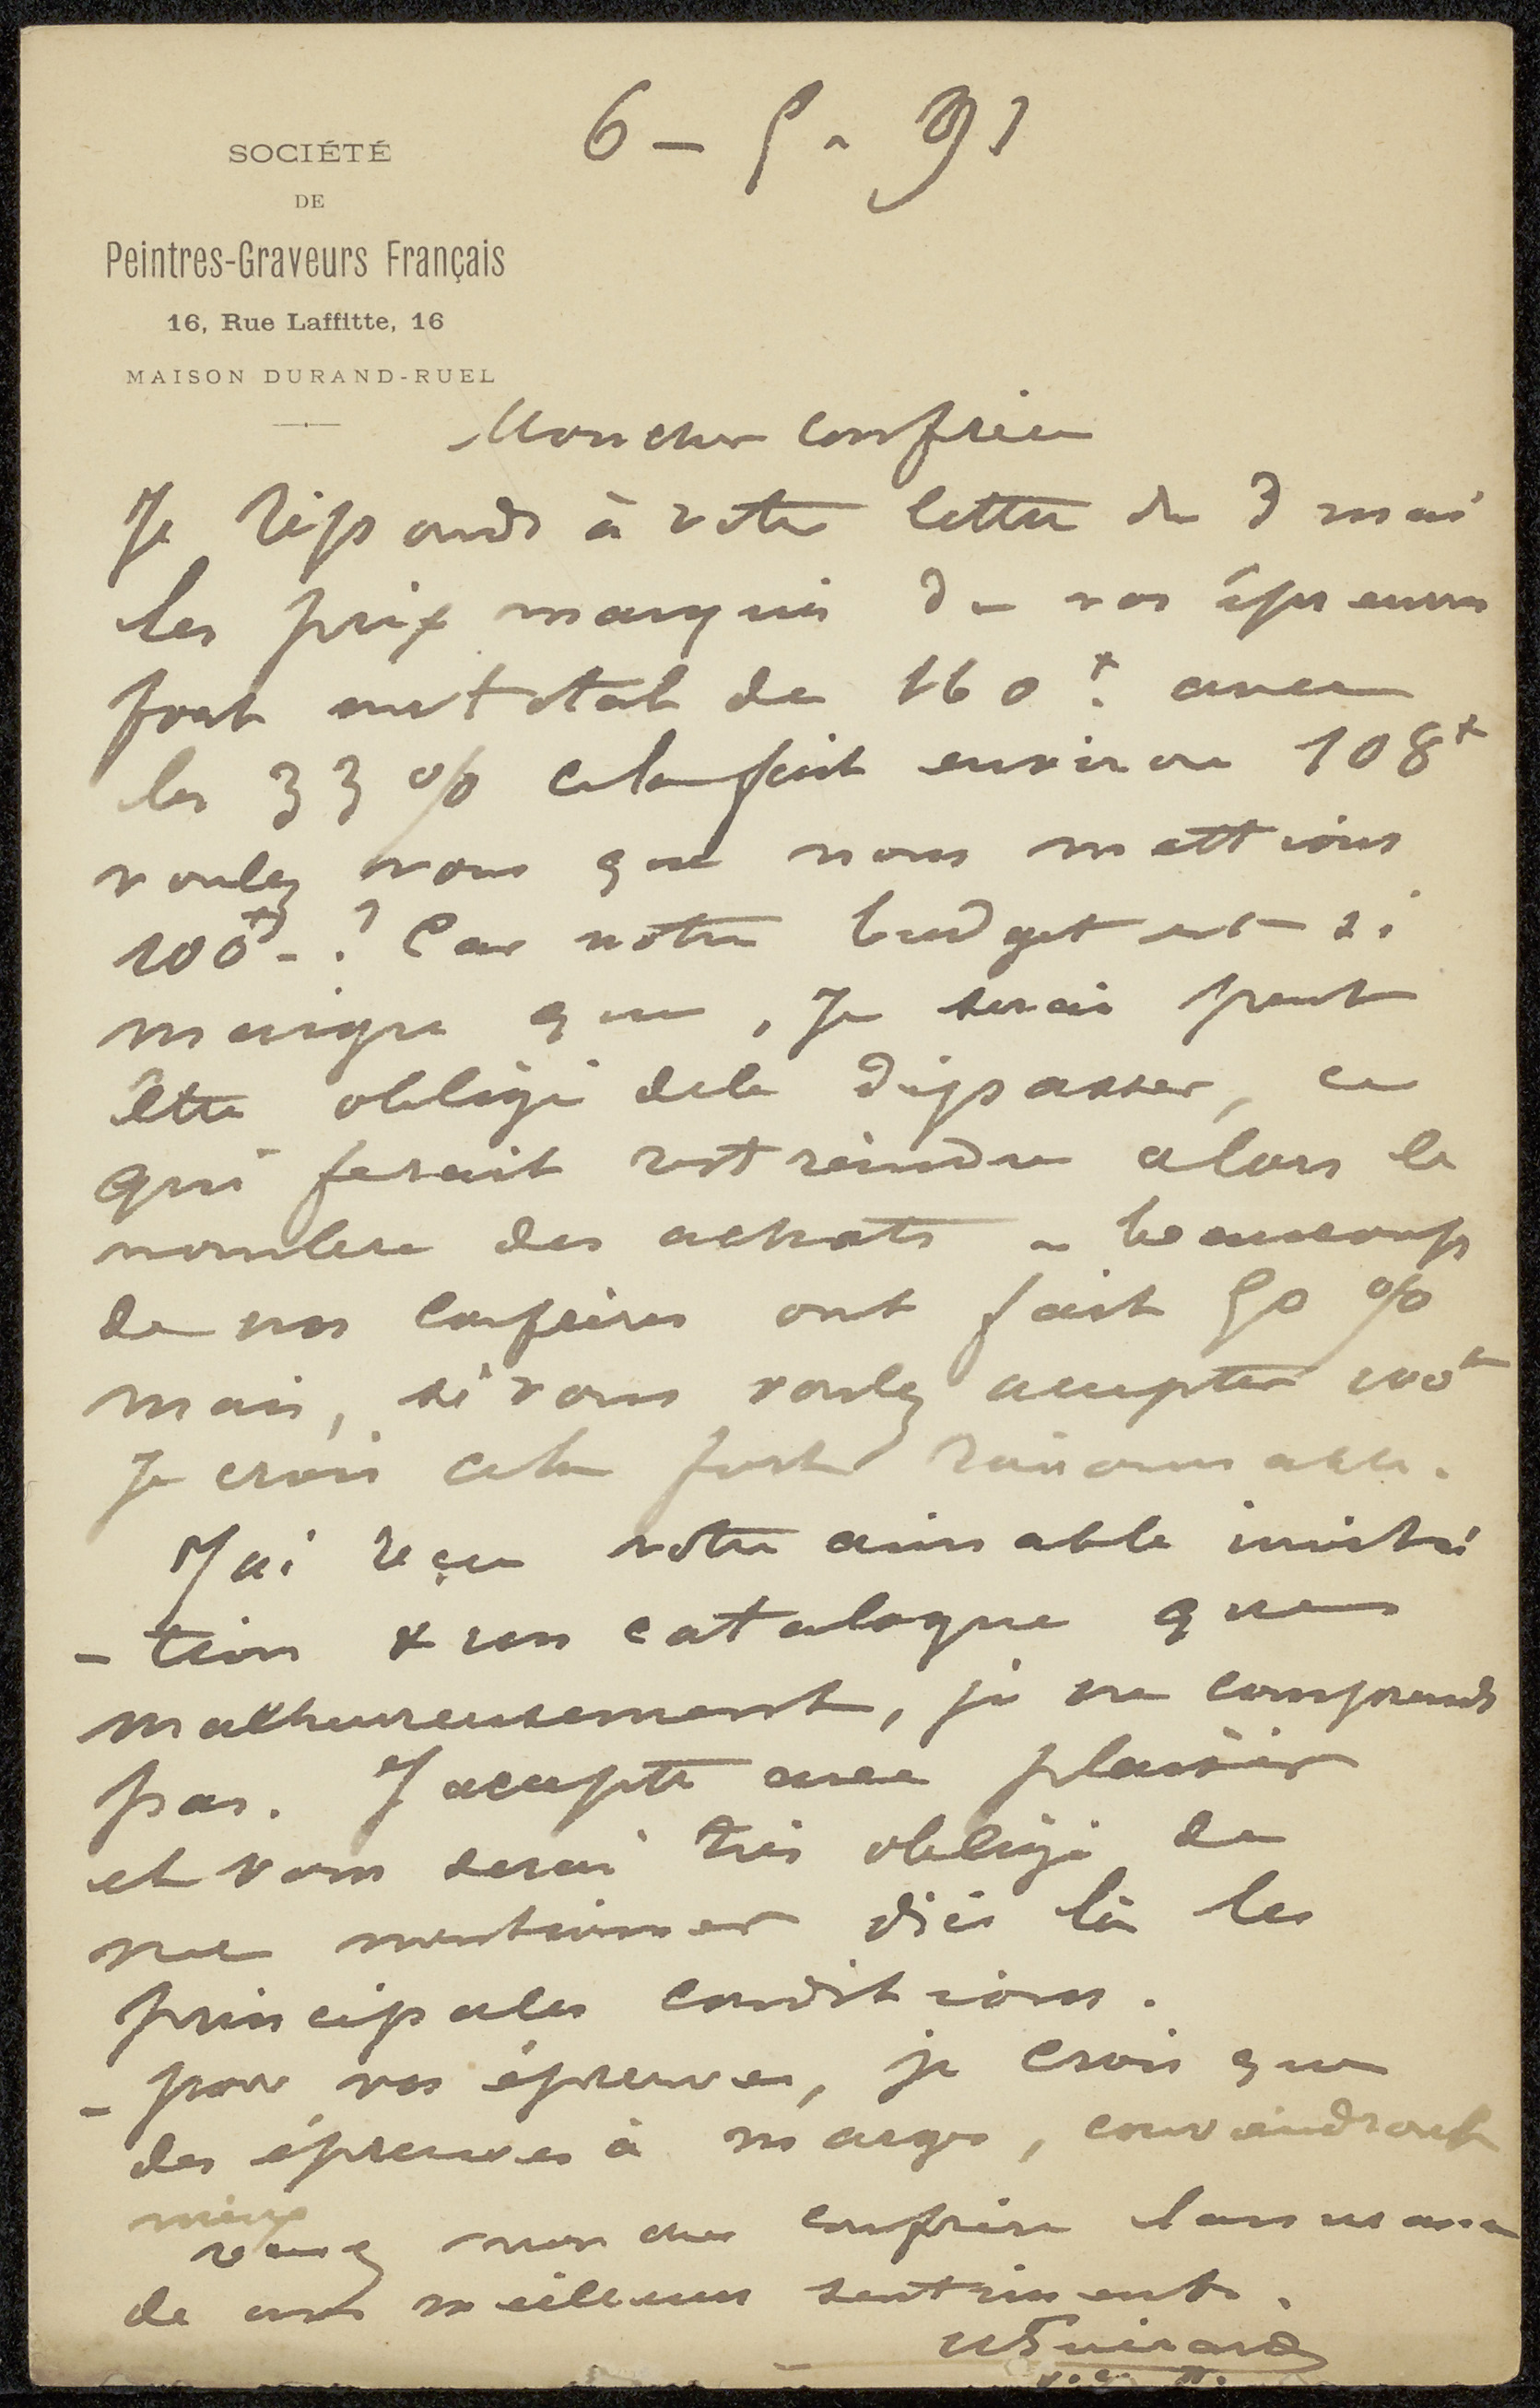 6 - 5 - 91
SOCIÉTÉ
DE
Peintres-Graveurs Français
16, Rue Laffitte, 16
MAISON DURAND-RUEL
Mon cher confrère
Je réponds à votre lettre du 3 mai
les prix marqués de vos épreuves
font un total de 160 f. avec
les 33 % cela fait environ 108 f
voulez vous que nous mettions
100 f - ? Car notre budget est si
maigre que, Je serai peut
être obligé de le dépasser, ce
qui ferait restreindre alors le
nombre des achats - beaucoup
de nos confrères ont fait 50 %
mais, si vous voulez accepter 100 f
Je crois cela fort raisonnable.
J'ai reçu votre aimable invita
- tion & un catalogue que
malheureusement, je ne comprends
pas. J'accepte avec plaisir
et vous serai très obligé de
me mentionner dès là les
principales conditions.
- pour vos épreuves, je crois que
des épreuves à marges, conviendront
mieux
recevez mon cher confrère l'assurance
de mes meilleurs sentiments.
HGuérard